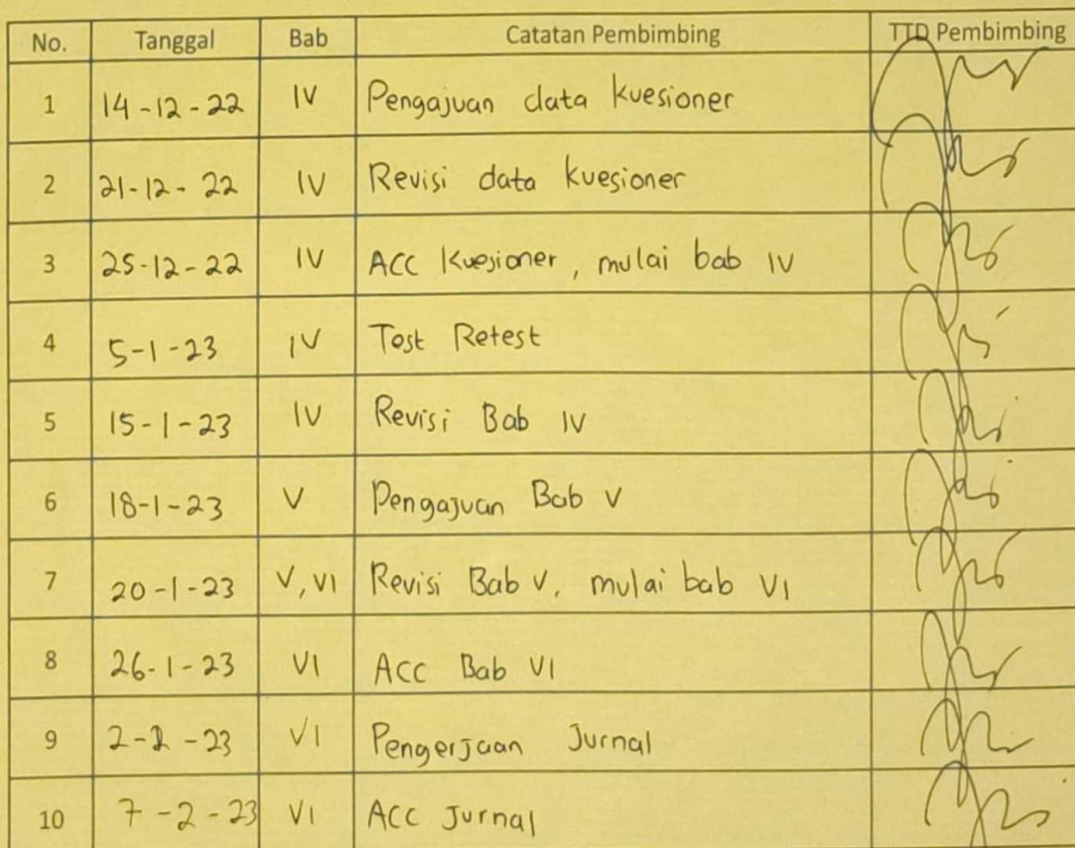 No. Tanggal Bab Catatan Pembimbing TTD Pembimbing
1 14-12-22 IV Pengajuan data kuesioner
2 21-12-22 IV Revisi data kuesioner
3 25-12-22 IV ACC Kuesioner, mulai bab IV
4 5-1-23 IV Test Retest
5 15-1-23 IV Revisi Bab IV
6 18-1-23 V Pengajuan Bab V
7 20-1-23 V, VI Revisi Bab V, mulai bab VI
8 26-1-23 VI ACC Bab VI
9 2-2-23 VI Pengerjaan Jurnal
10 7-2-23 VI ACC Jurnal